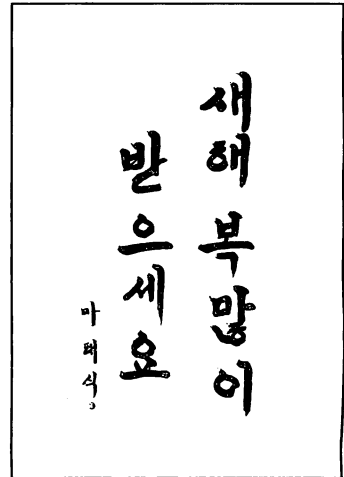 새해 복많이
받으세요
마태식